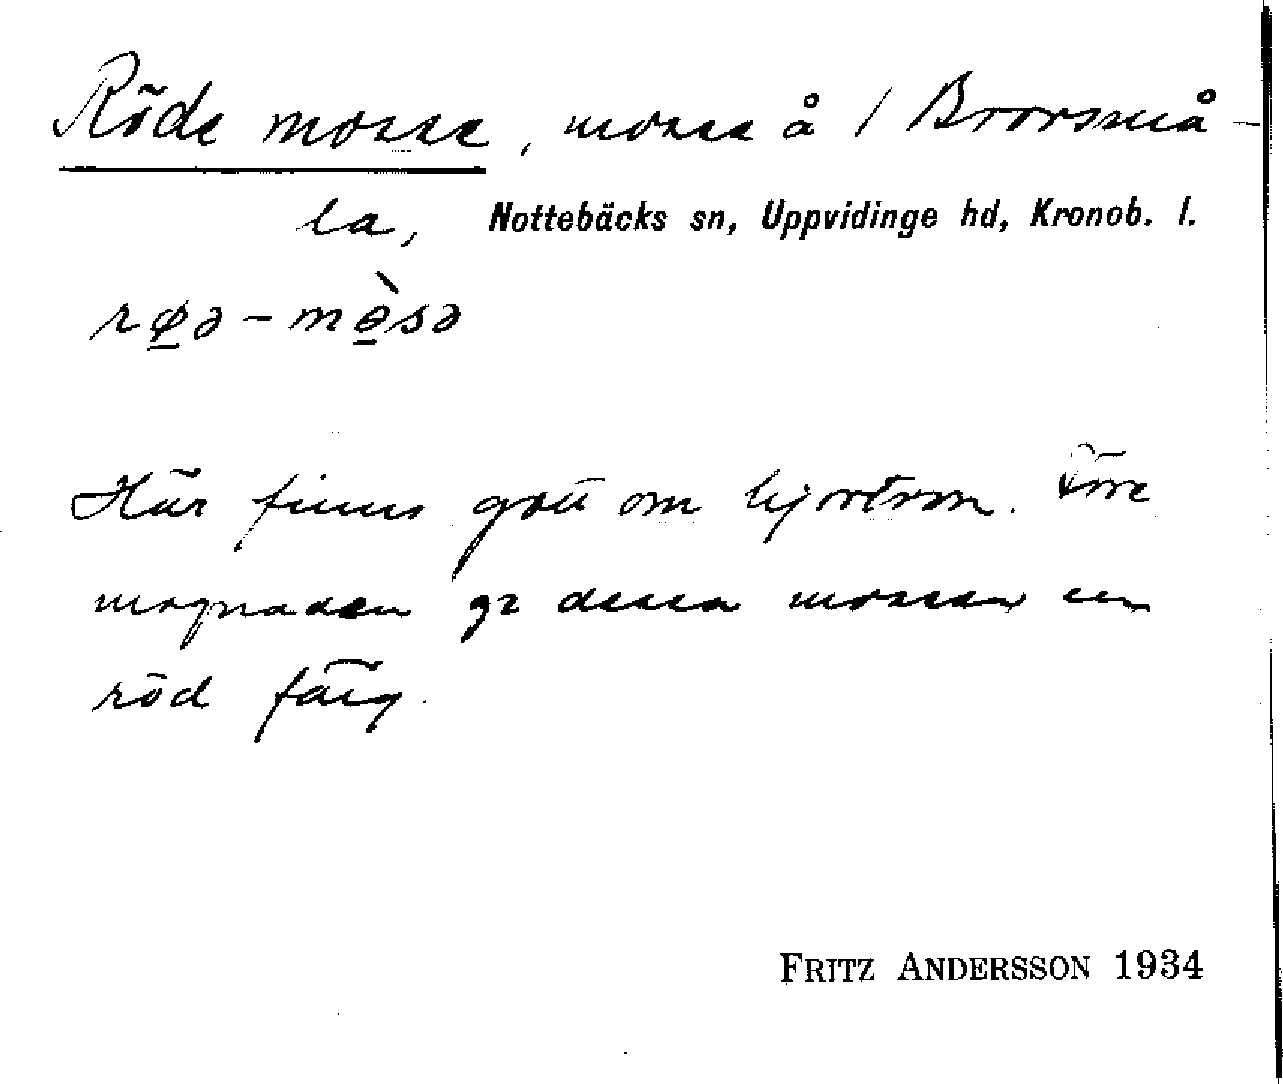 Röde mosse, mosse å 1 Brorsmå-
la, Nottebäcks sn, Uppvidinge hd, Kronob. l.
rø̲ə-mө̲̀sə
Här finns gott om hjortron. Före
mognaden ge dessa mossen en
röd färg.
FRITZ ANDERSSON 1934